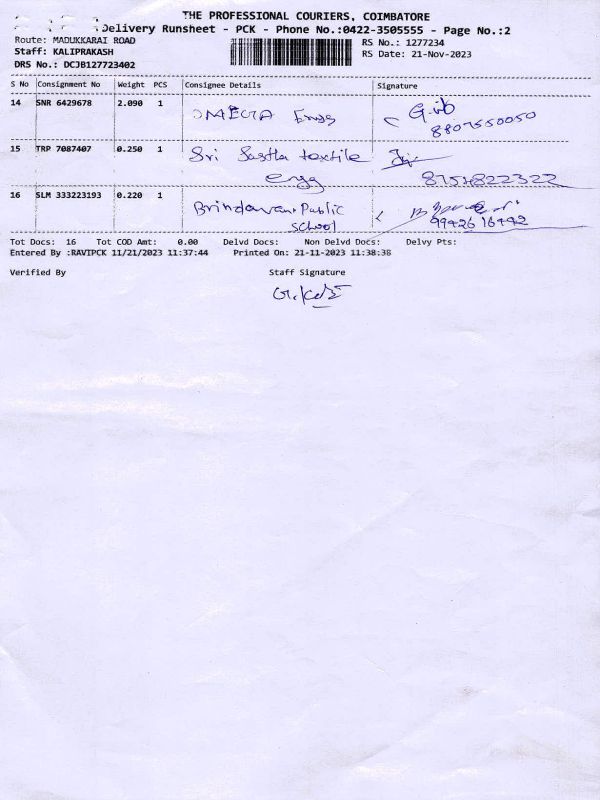 THE PROFESSIONAL COURIERS, COIMBATORE
Delivery Runsheet - PCK - Phone No.:0422-3505555 - Page No.:2
Route: MADUKKARAI ROAD RS No.: 1277234
Staff: KALIPRAKASH RS Date: 21-Nov-2023
DRS No.: DCJB127723402
S No Consignment No Weight PCS Consignee Details Signature
14 SNR 6429678 2.090 1 OMEGA Engg
8807550050
15 TRP 7087407 0.250 1 Sri Sastha textile
engg 8754822322
16 SLM 333223193 0.220 1 Brindavan Public
School 99426 16442
Tot Docs: 16 Tot COD Amt: 0.00 Delvd Docs: Non Delvd Docs: Delvy Pts:
Entered By :RAVIPCK 11/21/2023 11:37:44 Printed On: 21-11-2023 11:38:38
Verified By Staff Signature